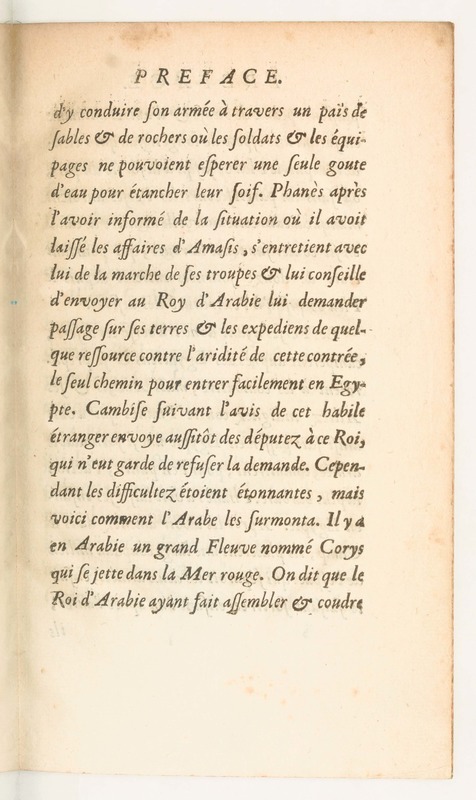 PREFACE.
d'y conduire ſon armée à travers un païs de
ſables & de rochers où les ſoldats & les équi-
pages ne pouvoient eſperer une ſeule goute
d'eau pour étancher leur ſoif. Phanès après
l'avoir informé de la ſituation où il avoit
laiſſé les affaires d'Amaſis, s'entretient avec
lui de la marche de ſes troupes & lui conſeille
d'envoyer au Roy d'Arabie lui demander
paſſage ſur ſes terres & les expediens de quel-
que reſſource contre l'aridité de cette contrée,
le ſeul chemin pour entrer facilement en Egy-
pte. Cambiſe ſuivant l'avis de cet habile
étranger envoye auſſitôt des députez à ce Roi,
qui n'eut garde de refuſer la demande. Cepen-
dant les difficultez étoient étonnantes, mais
voici comment l'Arabe les ſurmonta. Il y a
en Arabie un grand Fleuve nommé Corys
qui ſe jette dans la Mer rouge. On dit que le
Roi d'Arabie ayant fait aſſembler & coudre